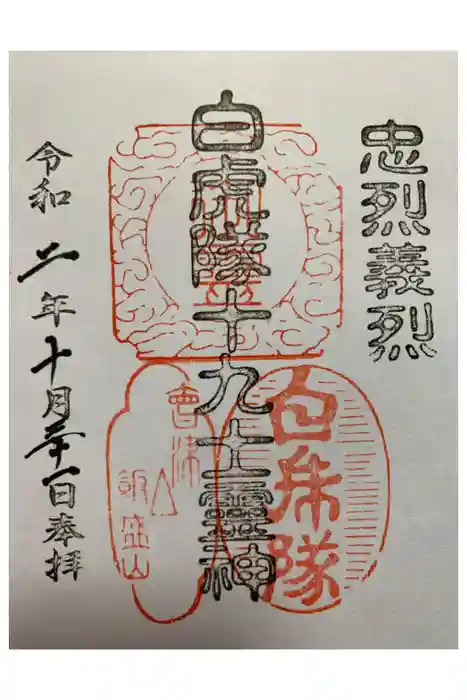 忠烈義烈
白虎隊十九士霊神
白虎隊
會津
飯盛山
令和二年十月廿一日奉拝